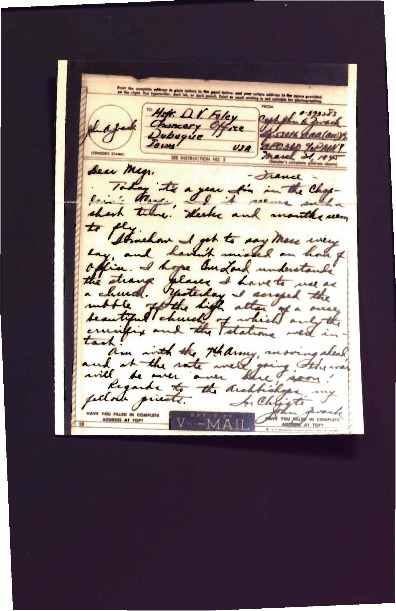 Print the complete address in plain letters in the panel below, and your return address in the space provided
on the right. Use typewriter, dark ink, or dark pencil. Faint or small writing is not suitable for photographing.
TO
Msgr. D. V. Foley
Chancery Office
Dubuque
Iowa USA
FROM
March 21, 1945
(Sender's complete address above)
(CENSOR'S STAMP)
SEE INSTRUCTION NO. 2
Dear Msgr. - France -
Today it's a year I'm in the Chap-
lain's Corps, and it seems such a
short time. Weeks and months seem
to fly.
Somehow I got to say Mass every
day, and haven't missed an hour of
office. I hope Our Lord understands
the strange places I have to use as
a church. Yesterday I scraped the
rubble off the high altar of a once
beautiful church of which only the
crucifix and the stations were in
tact.
Am with the 7th Army, moving ahead,
and at the rate we're going the war
will be over over here, soon!
Regards to the Archbishop, my
fellow priests. In Christo
HAVE YOU FILLED IN COMPLETE
ADDRESS AT TOP?
V-MAIL
HAVE YOU FILLED IN COMPLETE
ADDRESS AT TOP?